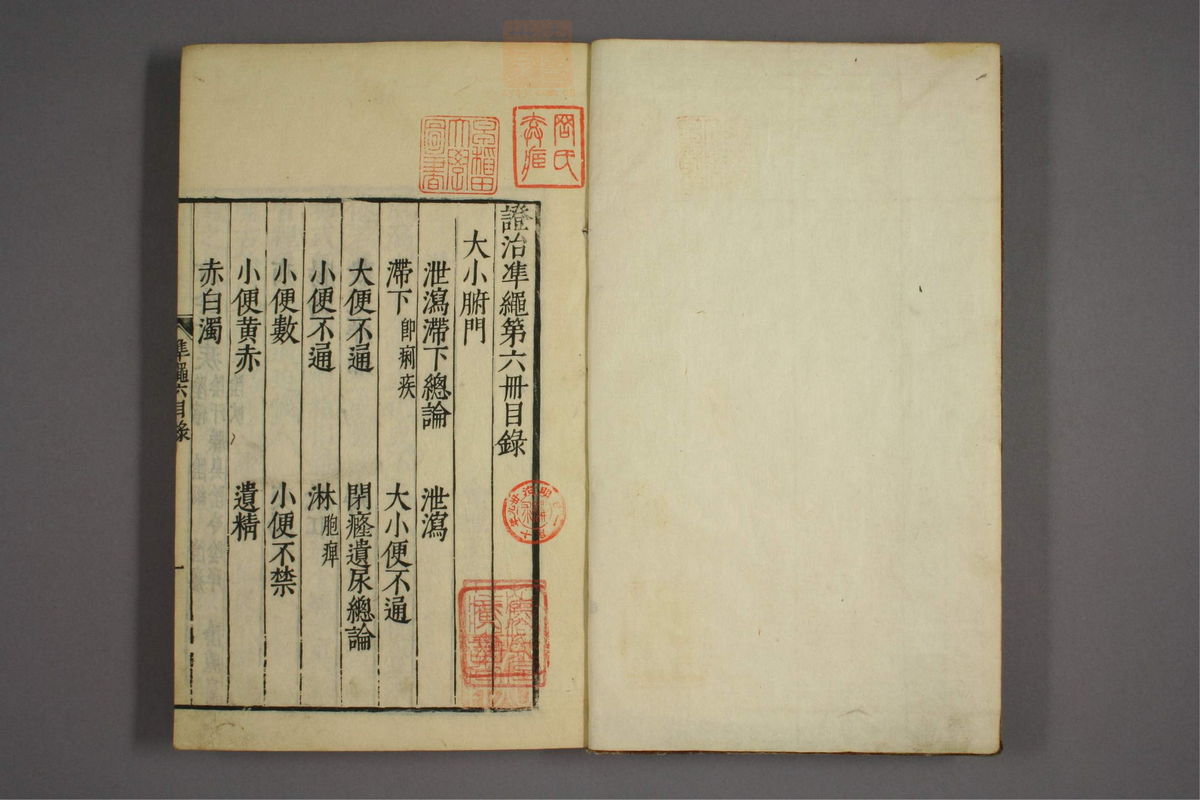 證治凖繩第六冊目錄
大小腑門
泄瀉滯下總論 泄瀉
滯下 卽痢疾 大小便不通
大便不通 閉癃遺尿總論
小便不通 淋 胞痺
小便數 小便不禁
小便黃赤 遺精
赤白濁
凖繩六目錄 一